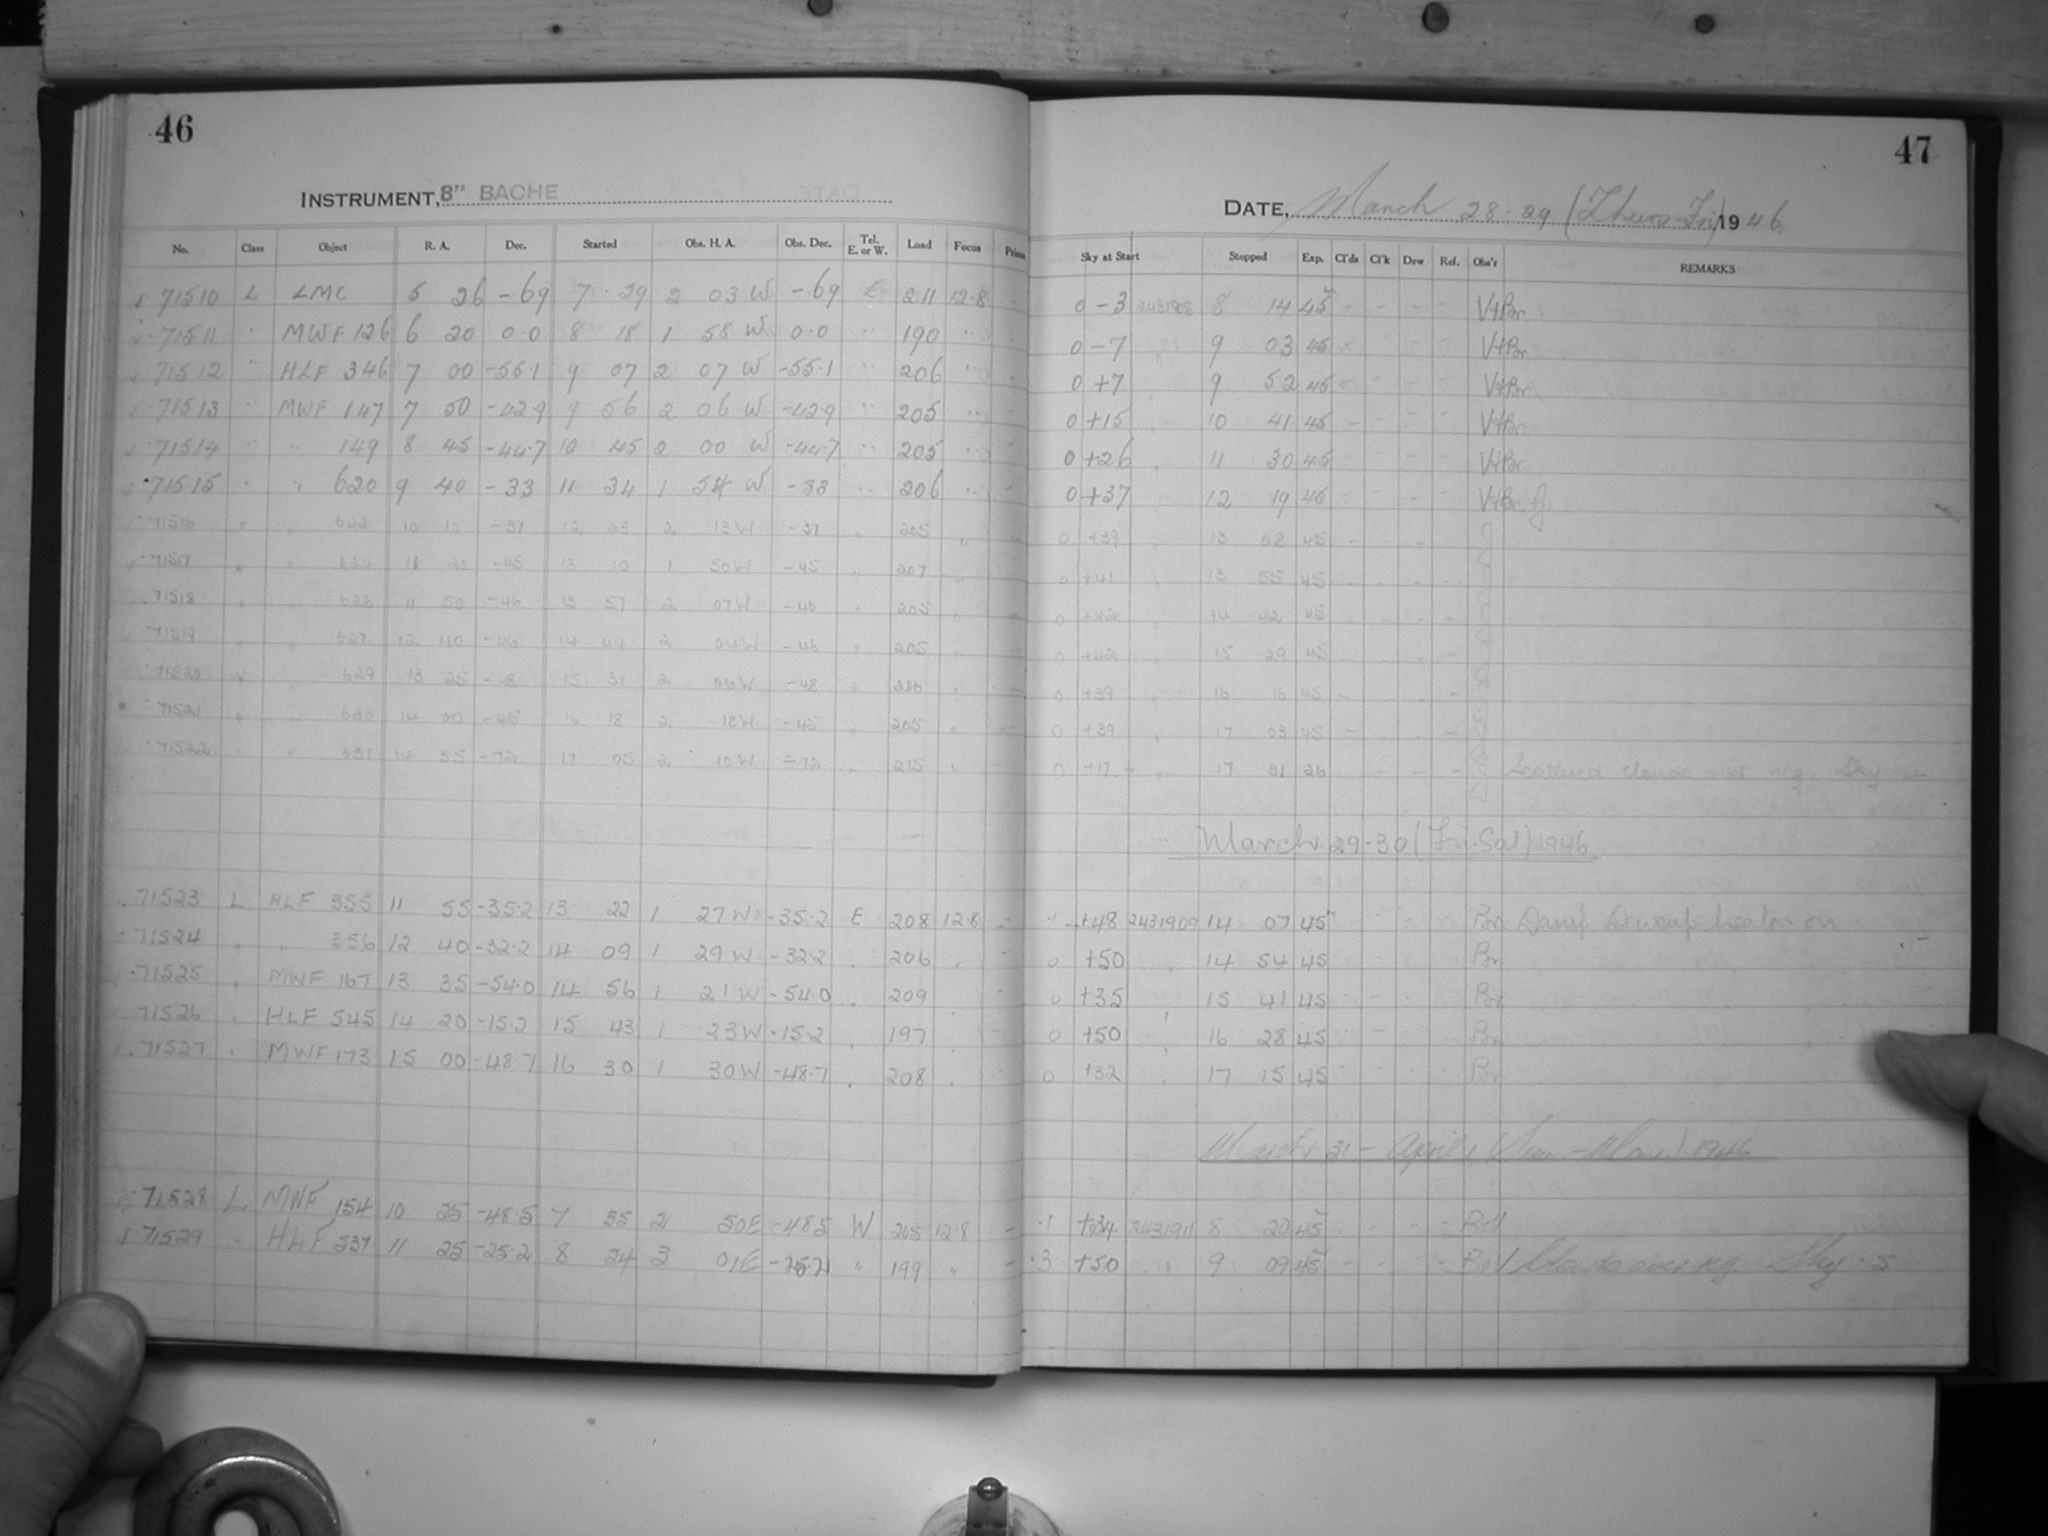 46
INSTRUMENT, 8" BACHE
No. Class Object R. A. Dec. Started Obs. H. A. Obs. Dec. Tel. E. or W. Load Focus
71510 L LMC 5 26 -69 7 29 2 03 W -69 E 211 12.8
71511 " MWF 126 6 20 0.0 8 18 1 58 W 0.0 " 190 "
71512 " HLF 346 7 00 -55.1 9 07 2 07 W -55.1 " 206 "
71513 " MWF 147 7 50 -42.9 9 56 2 06 W -42.9 " 205 "
71514 " " 149 8 45 -44.7 10 45 2 00 W -44.7 " 205 "
71515 " " 620 9 40 -33 11 34 1 54 W -33 " 206 "
71516 " " 10 10 -37 12 23 2 13 W -37 " 205 "
71517 " " 11 20 -45 13 10 1 50 W -45 " 207 "
71518 " " 11 50 -46 13 57 2 07 W -46 " 205 "
71519 " " 627 12 40 -46 14 44 2 04 W -46 " 205 "
71520 " " 629 13 25 -48 15 31 2 06 W -48 "
71521 " " 14 00 -45 16 18 2 18 W -45 " 205 "
71522 " " 631 14 55 -72 17 05 2 10 W -72 " 215 "
71523 L HLF 355 11 55 -35.2 13 22 1 27 W -35.2 E 208 12.8 -
71524 " " 356 12 40 -32.2 14 09 1 29 W -32.2 " 206 "
71525 " MWF 167 13 35 -54.0 14 56 1 21 W -54.0 " 209
71526 " HLF 545 14 20 -15.2 15 43 1 23 W -15.2 " 197
71527 " MWF 173 15 00 -48.7 16 30 1 30 W -48.7 " 208
71528 L MWF 154 10 25 -48.5 7 35 2 50 E -48.5 W 205 12.8 -
71529 " HLF 537 11 25 -25.2 8 24 3 01 E -25.2 " 199 " -
47
DATE, March 28-29 (Thurs-Fri) 1946
Sky at Start Stopped Exp. Cl'ds Cl'k Dew Ref. Obs'r REMARKS
0 -3 2431908 8 14 45 V+Br
0 -7 " 9 03 45 V+Br
0 +7 " 9 52 45 V+Br
0 +15 " 10 41 45 V+Br
0 +26 " 11 30 45 V+Br
0 +37 " 12 19 45 V+Br
0 +39 " 13 45
0 +41 " 13 55 45
0 " 14 42 45
0 " 15 29 45
0 +39 " 16 16 45
0 +39 " 17 03 45
0 +17 " 17 31 26 Scattered clouds over reg. Sky
March 29-30 (Fri-Sat) 1946
.1 +48 2431909 14 07 45 Br Damp. Dewcap heater on
0 +50 " 14 54 45 Br
0 +35 " 15 41 45 Br
0 +50 " 16 28 45 Br
0 +32 " 17 15 45 Br
March 31 - April 1, (Sun-Mon.) 1946
.1 +34 2431911 8 20 45
.3 +50 " 9 09 45 Clouds over reg. Sky .5